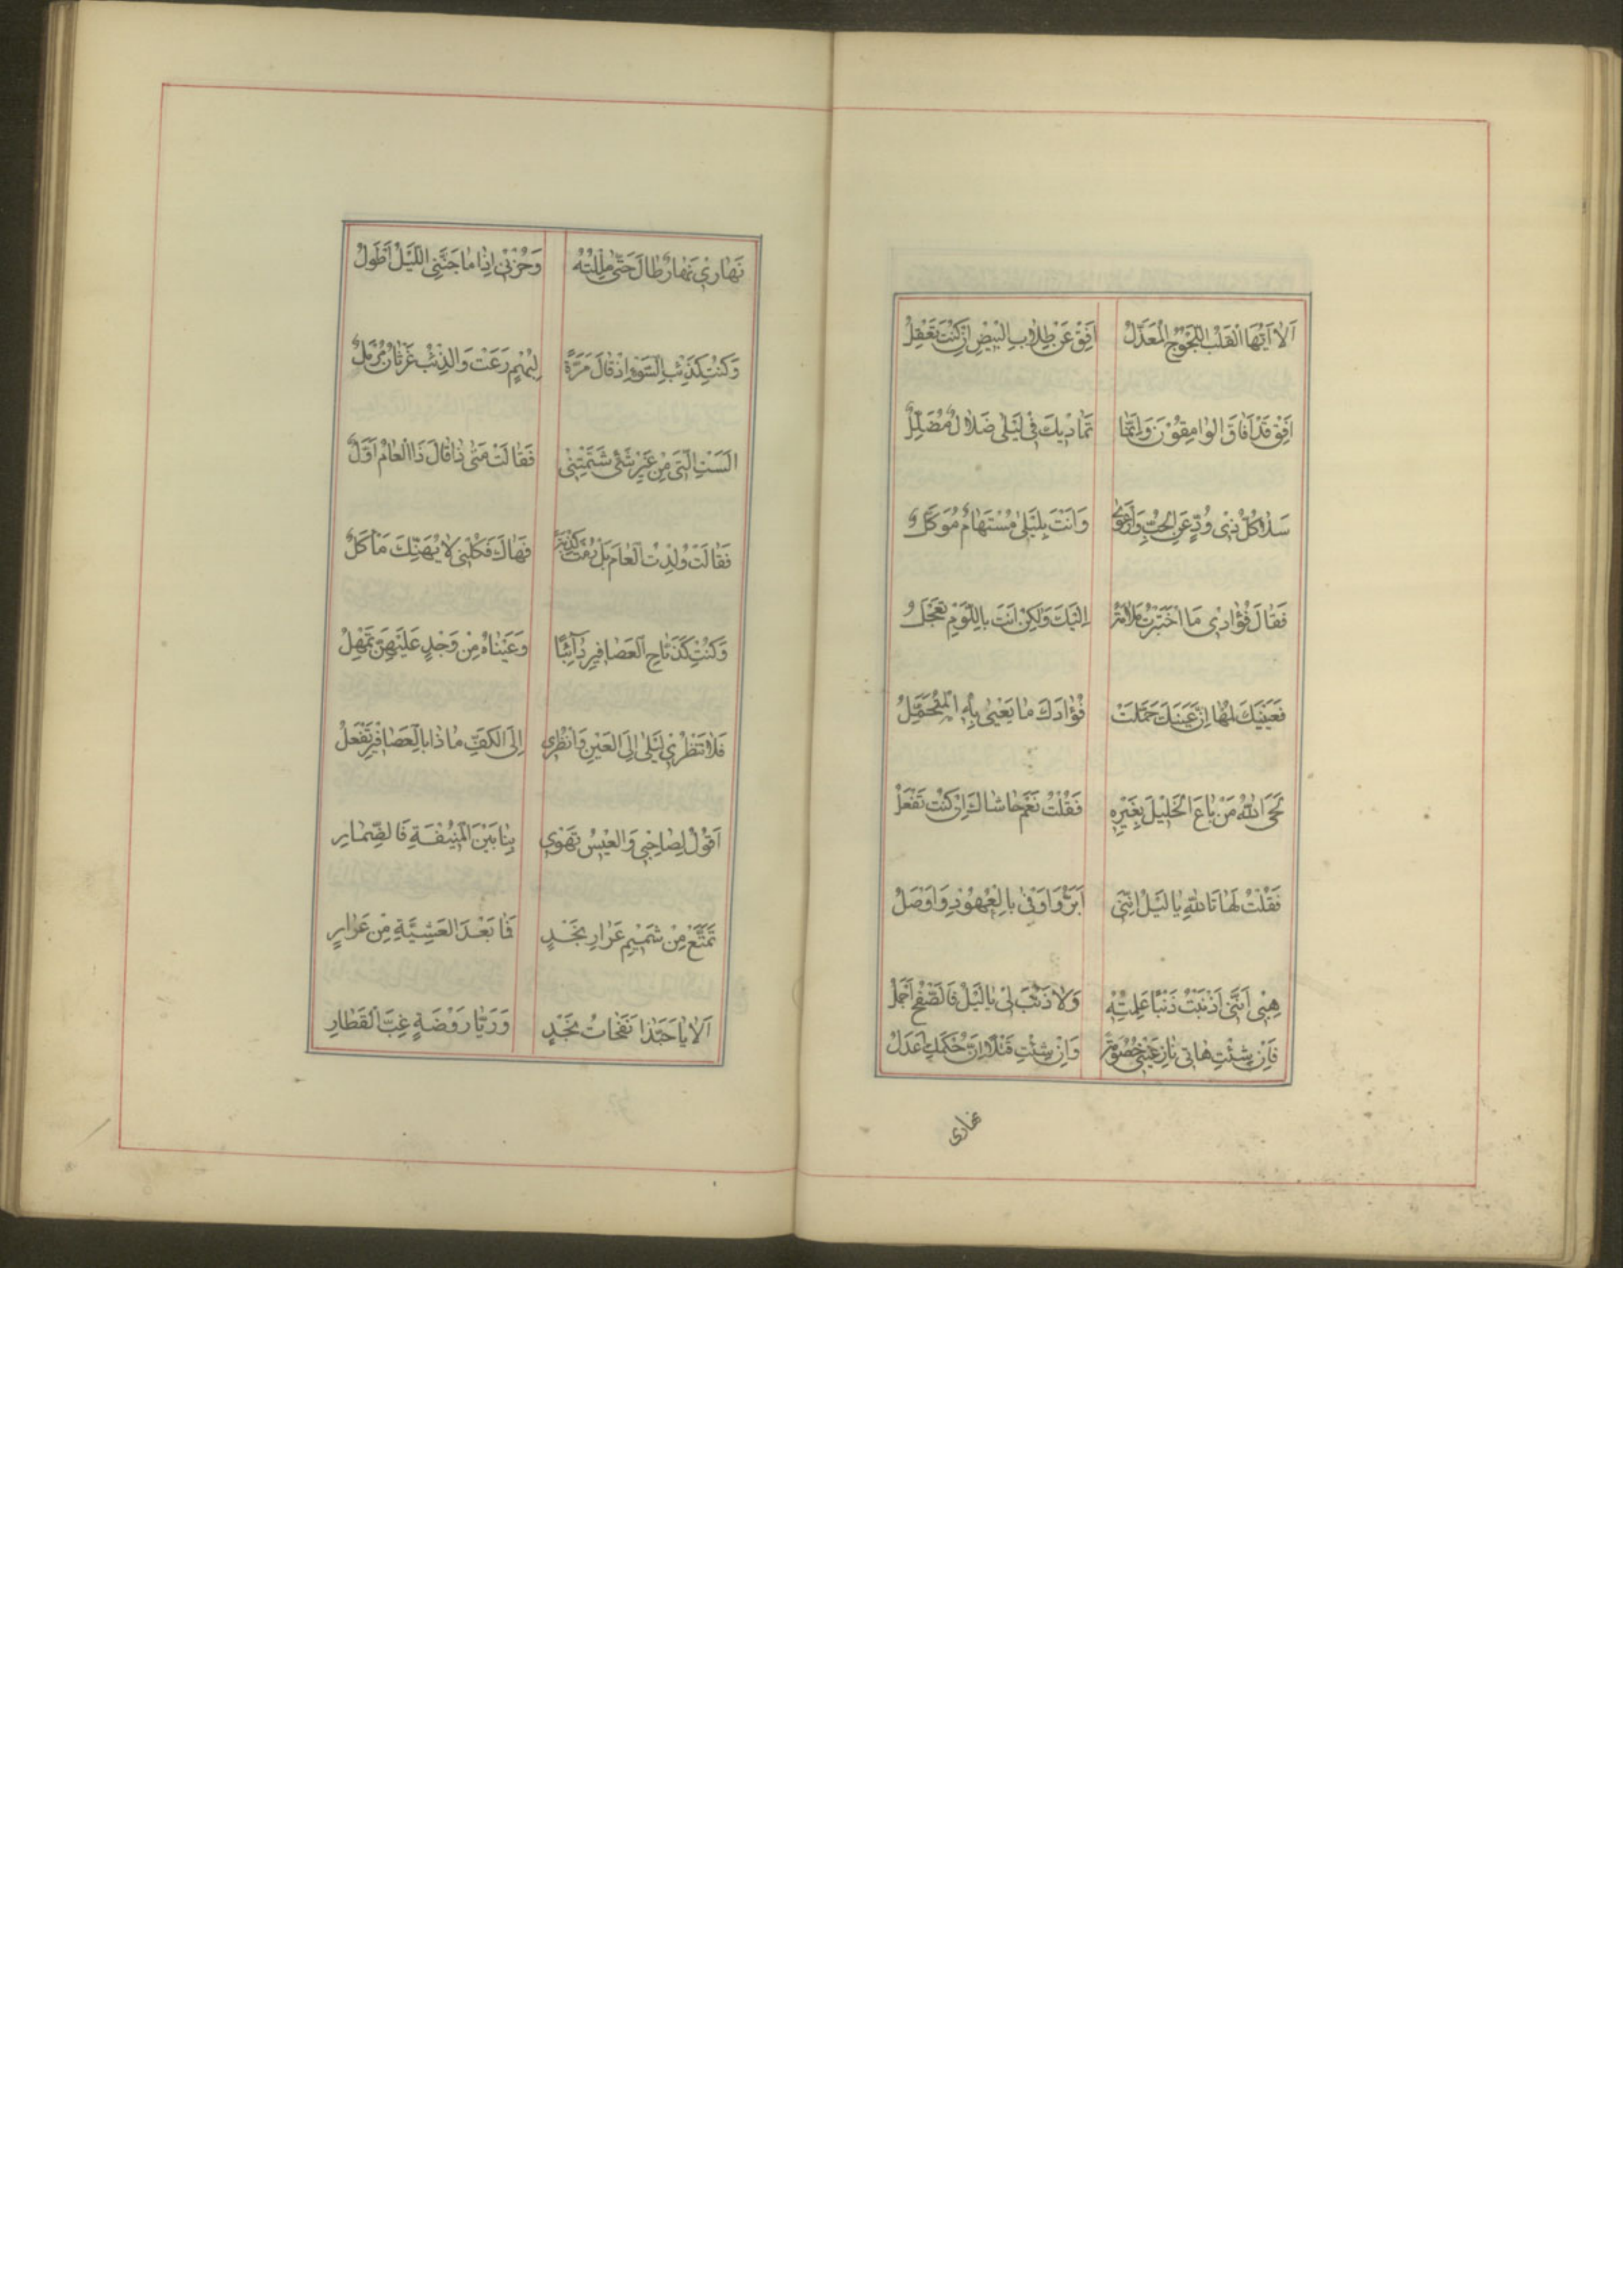 اَلا اَيُّهَا القَلْبُ اللَّجُوْجُ المُعَذَّلُ اَفِقْ عَنْ طِلَابِ البِيْضِ اِنْ كُنْتَ تَعْقِلُ
اَفِقْ قَدْ اَفَاقَ الوَامِقُوْنَ وَاِنَّمَا تَمَادِيْكَ فِى لَيْلَى ضَلَالٌ مُضَلِّلٌ
سَلَا كُلُّ ذِى وُدٍّ عَنِ الحُبِّ وَارْعَوَى وَاَنْتَ بِلَيْلَى مُسْتَهَامٌ مُوَكَّلٌ
فَقَالَ فُؤَادِى مَا اخْتَرَرْتُ مَلَامَةً اِلَيْكَ وَلٰكِنْ اَنْتَ بِاللَّوْمِ تَعْجَلُ
فَعَيْنَيْكَ لُمْهَا اِنَّ عَيْنَكَ حَمَّلَتْ فُؤَادَكَ مَا يَعْيٰى بِهِ المُتَحَمِّلُ
لَحَى اللّٰهُ مَنْ بَاعَ الخَلِيْلَ بِغَيْرِهِ فَقُلْتُ نَعَمْ حَاشَاكَ اِنْ كُنْتَ تَفْعَلُ
فَقُلْتُ لَهَا تَاللّٰهِ يَا لَيْلَ اِنَّنِى اَبَرُّ وَاَوْفٰى بِالعُهُوْدِ وَاَوْصَلُ
هِبِى اَنَّنِى اَذْنَبْتُ ذَنْبًا عَلِمْتِهِ وَلَا ذَنْبَ لِى يَا لَيْلَ فَالصَّفْحُ اَجْمَلُ
فَاِنْ شِئْتِ هَاتِى نَازِعِيْنِى خُصُوْمَةً وَاِنْ شِئْتِ قَتْلًا اِنَّ حُكْمَكِ اَعْدَلُ
نهارى
نَهَارِىْ نَهَارٌ طَالَ حَتّٰى مَلِلْتُهُ وَحُزْنِىْ اِذَا مَا جَنَّنِى اللَّيْلُ اَطْوَلُ
وَكُنْتِ كَذِئْبِ السَّوْءِ اِذْ قَالَ مَرَّةً لِبُهْمٍ رَعَتْ وَالذِّئْبُ غَرْثَانُ مُرْمِلٌ
اَلَسْتِ الَّتِى مِنْ غَيْرِ شَئٍ شَتَمْتِنِى فَقَالَتْ مَتٰى ذَا قَالَ ذَا العَامُ اَوَّلٌ
فَقَالَتْ وُلِدْتُ العَامَ بَلْ رُمْتَ كِذْبَةً فَهَاكَ فَكُلْنِى لَا يُهَنِّكَ مَاْكَلٌ
وَكُنْتِ كَذَبَّاحِ العَصَافِيْرِ دَآئِبًا وَعَيْنَاهُ مِنْ وَجْدٍ عَلَيْهِنَّ تَهْمِلُ
فَلَا تَنْظُرِىْ لَيْلٰى اِلَى العَيْنِ وَانْظُرِى اِلَى الكَفِّ مَاذَا بِالعَصَافِيْرِ تَفْعَلُ
اَقُوْلُ لِصَاحِبِى وَالعِيْسُ تَهْوِى بِنَا بَيْنَ المُنِيْفَةِ فَالضِّمَارِ
تَمَتَّعْ مِنْ شَمِيْمِ عَرَارِ نَجْدٍ فَمَا بَعْدَ العَشِيَّةِ مِنْ عَرَارِ
اَلَا يَا حَبَّذَا نَفَحَاتُ نَجْدٍ وَرَيَّا رَوْضَةٍ غِبَّ القَطَارِ